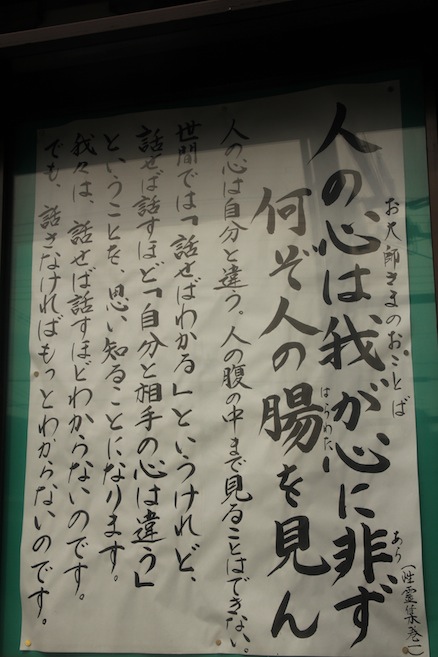 お大師さまのおことば
人の心は、我が心に非ず
あら
(性霊集巻一)
何ぞ人の腸を見ん
はらわた
人の心は自分と違う。人の腹の中まで見ることはできない。
世間では「話せばわかる」というけれど、
話せば話すほど「自分と相手の心は違う」
ということを、思い知ることになります。
我々は、話せば話すほどわからないのです。
でも、話さなければもっとわからないのです。